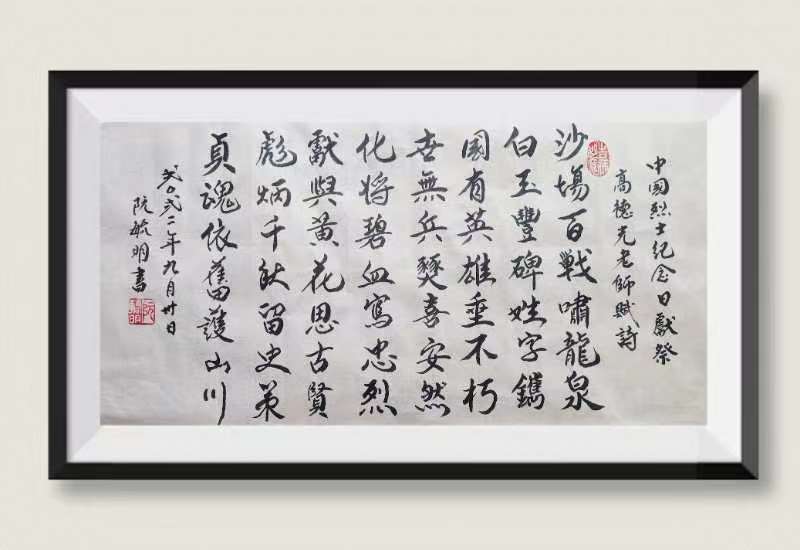 中國烈士纪念日獻祭
高德光老師賦詩
沙場百戰嘯龍泉
白玉豐碑姓字鐫
国有英雄垂不朽
世無兵燹喜安然
化將碧血寫忠烈
獻與黄花思古賢
彪炳千秋留史策
貞魂依舊護山川
弍〇弍二年九月卅日
阮毓明書